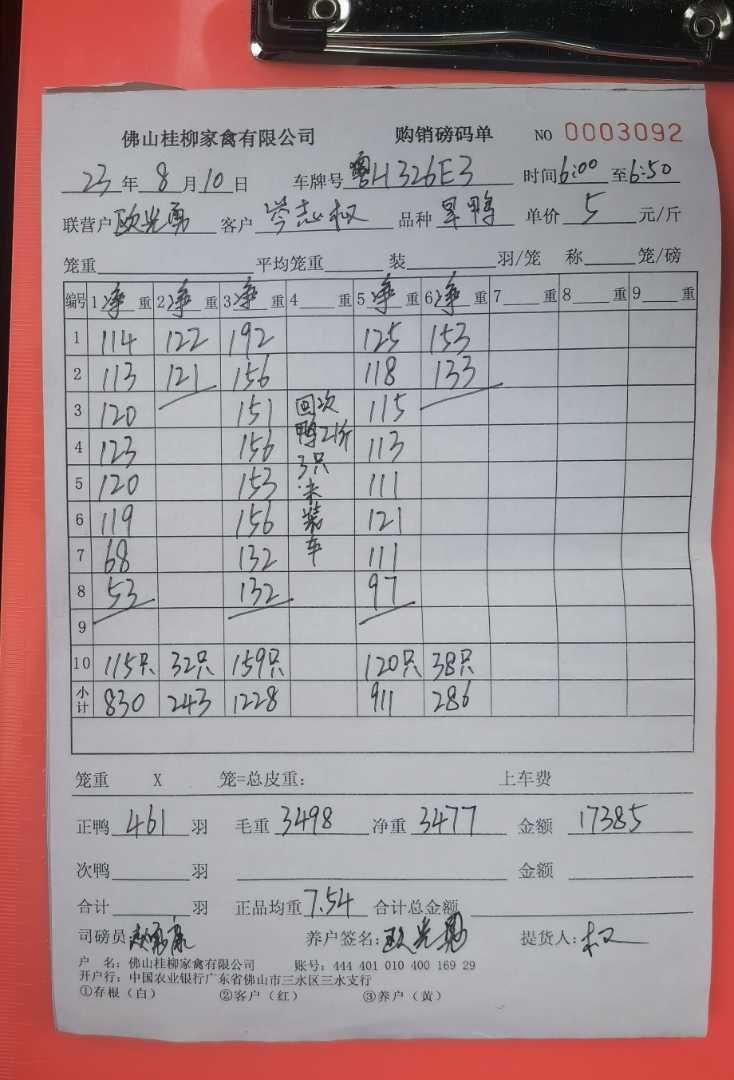 佛山桂柳家禽有限公司 购销磅码单 NO 0003092
23年8月10日 车牌号 粤H326E3 时间6:00至6:50
联营户欧光勇 客户岑志权 品种旱鸭 单价5元/斤
笼重 平均笼重 装 羽/笼 称 笼/磅
编号 1净重 2净重 3净重 4重 5净重 6净重 7重 8重 9重
1 114 122 192 125 153
2 113 121 156 118 133
3 120 151 回次 115
4 123 156 鸭21斤 113
5 120 153 3只 111
6 119 156 未装 121
7 68 132 车 111
8 53 132 97
9
10 115只 32只 159只 120只 38只
小计 830 243 1228 911 286
笼重 X 笼=总皮重: 上车费
正鸭461羽 毛重3498 净重3477 金额17385
次鸭 羽 金额
合计 羽 正品均重7.54 合计总金额
司磅员: 养户签名:欧光勇 提货人:权
户 名: 佛山桂柳家禽有限公司 账号: 444 401 010 400 169 29
开户行: 中国农业银行广东省佛山市三水区三水支行
①存根（白） ②客户（红） ③养户（黄）